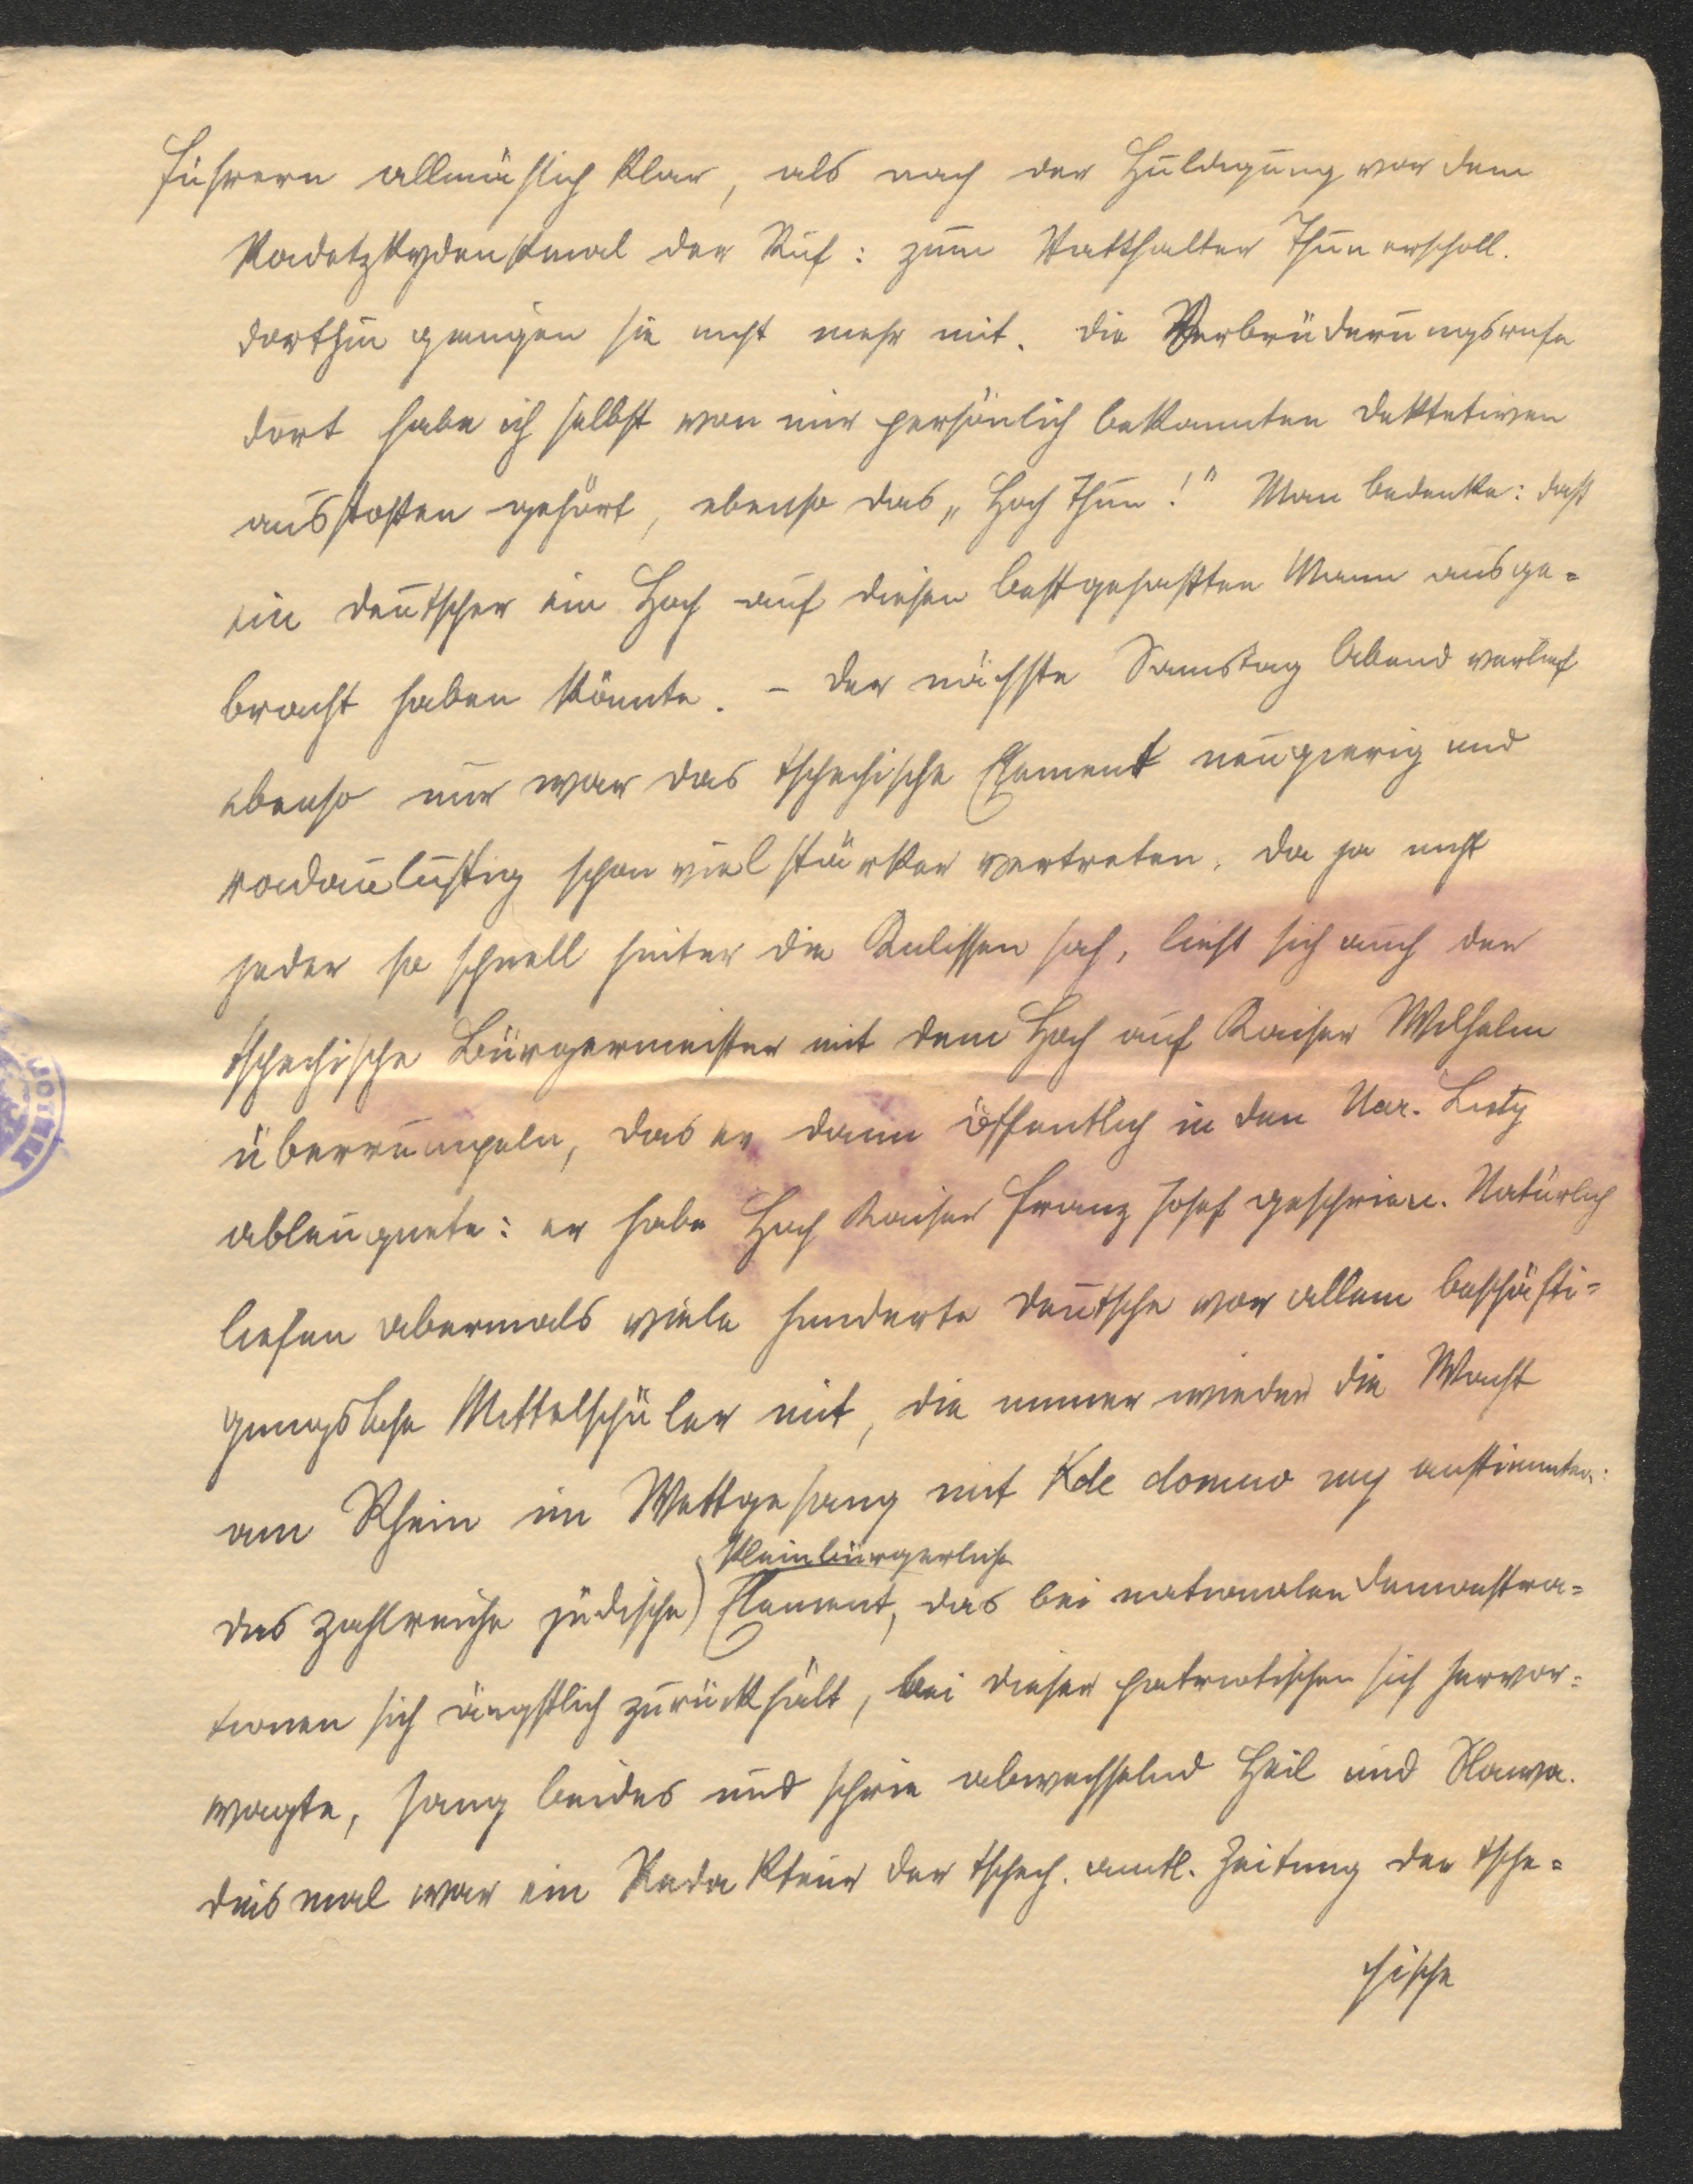 führern allmählich klar, als nach der Huldigung vor dem
Radetzkydenkmal der Ruf: zum Statthalter Thun erscholl.
Dorthin gingen sie nicht mehr mit. Die Verbrüderungsrufe
dort habe ich selbst von mir persönlich bekannten Dektetiven
ausstoßen gehört, ebenso das „Hoch Thun!" Man bedenke: daß
ein Deutscher ein Hoch auf diesen bestgehaßten Mann ausge=
bracht haben könnte. – Der nächste Samstag Abend verlief
ebenso nur war das tschechische Element neugierig und
radaulustig schon viel stärker vertreten. Da ja nicht
jeder so schnell hinter die Kulissen sah, ließ sich auch der
tschechische Bürgermeister mit dem Hoch auf Kaiser Wilhelm
überrumpeln, das er dann öffentlich in den Nar. Listy
ableugnete: er habe Hoch Kaiser Franz Josef geschrien. Natürlich
liefen abermals viele hunderte Deutsche vor allem beschäfti=
gungslose Mittelschüler mit, die immer wieder die Wacht
am Rhein im Wettgesang mit Kde domuv muj anstimmten:
kleinbürgerliche
das zahlreiche jüdische) Element, das bei nationalen Demonstra=
tionen sich ängstlich zurückhält, bei dieser patriotischen sich hervor=
wagte, sang beides und schrie abwechselnd Heil und Slawa.
Diesmal war ein Redakteur der tschech. amtl. Zeitung der tsche=
chische